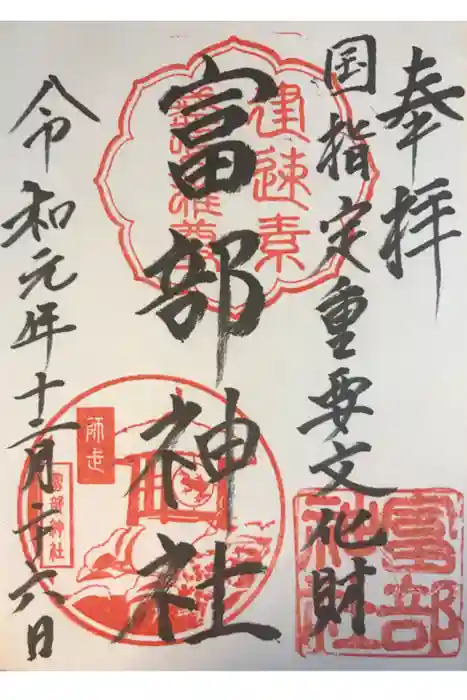 奉拝
国指定重要文化財
富部神社
令和元年十二月二十六日
建速素
師走
富部神社
富部
神社